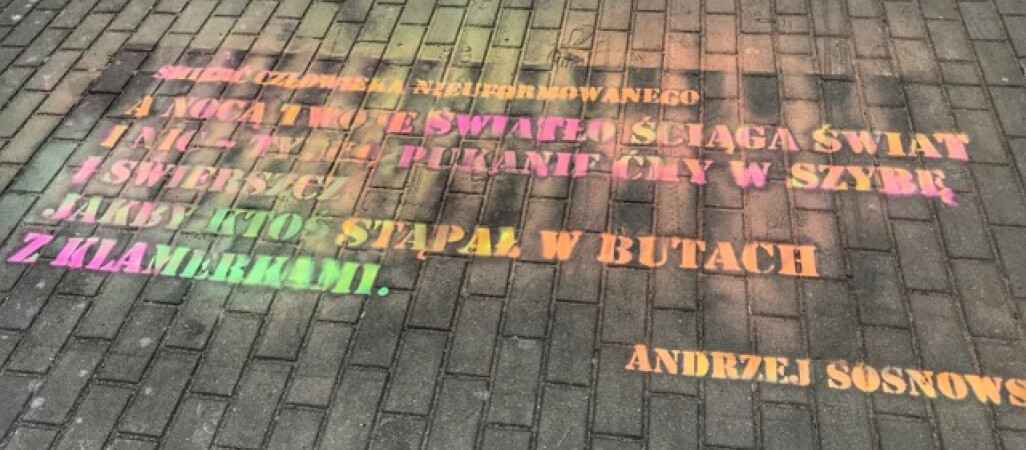 ŚMIERĆ CZŁOWIEKA NIEUFORMOWANEGO
A NOCĄ TWOJE ŚWIATŁO ŚCIĄGA ŚWIAT
I NIC – TYLKO PUKANIE ĆMY W SZYBĘ
I ŚWIERSZCZ
JAKBY KTOŚ STĄPAŁ W BUTACH
Z KLAMERKAMI.
ANDRZEJ SOSNOWS